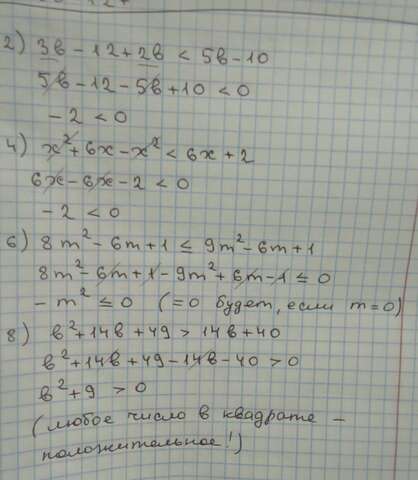 2) 3в - 12 + 2в < 5в - 10
5в - 12 - 5в + 10 < 0
- 2 < 0
4) x² + 6x - x² < 6x + 2
6x - 6x - 2 < 0
- 2 < 0
6) 8m² - 6m + 1 ≤ 9m² - 6m + 1
8m² - 6m + 1 - 9m² + 6m - 1 ≤ 0
- m² ≤ 0 (=0 будет, если m=0)
8) в² + 14в + 49 > 14в + 40
в² + 14в + 49 - 14в - 40 > 0
в² + 9 > 0
(любое число в квадрате -
положительное!)